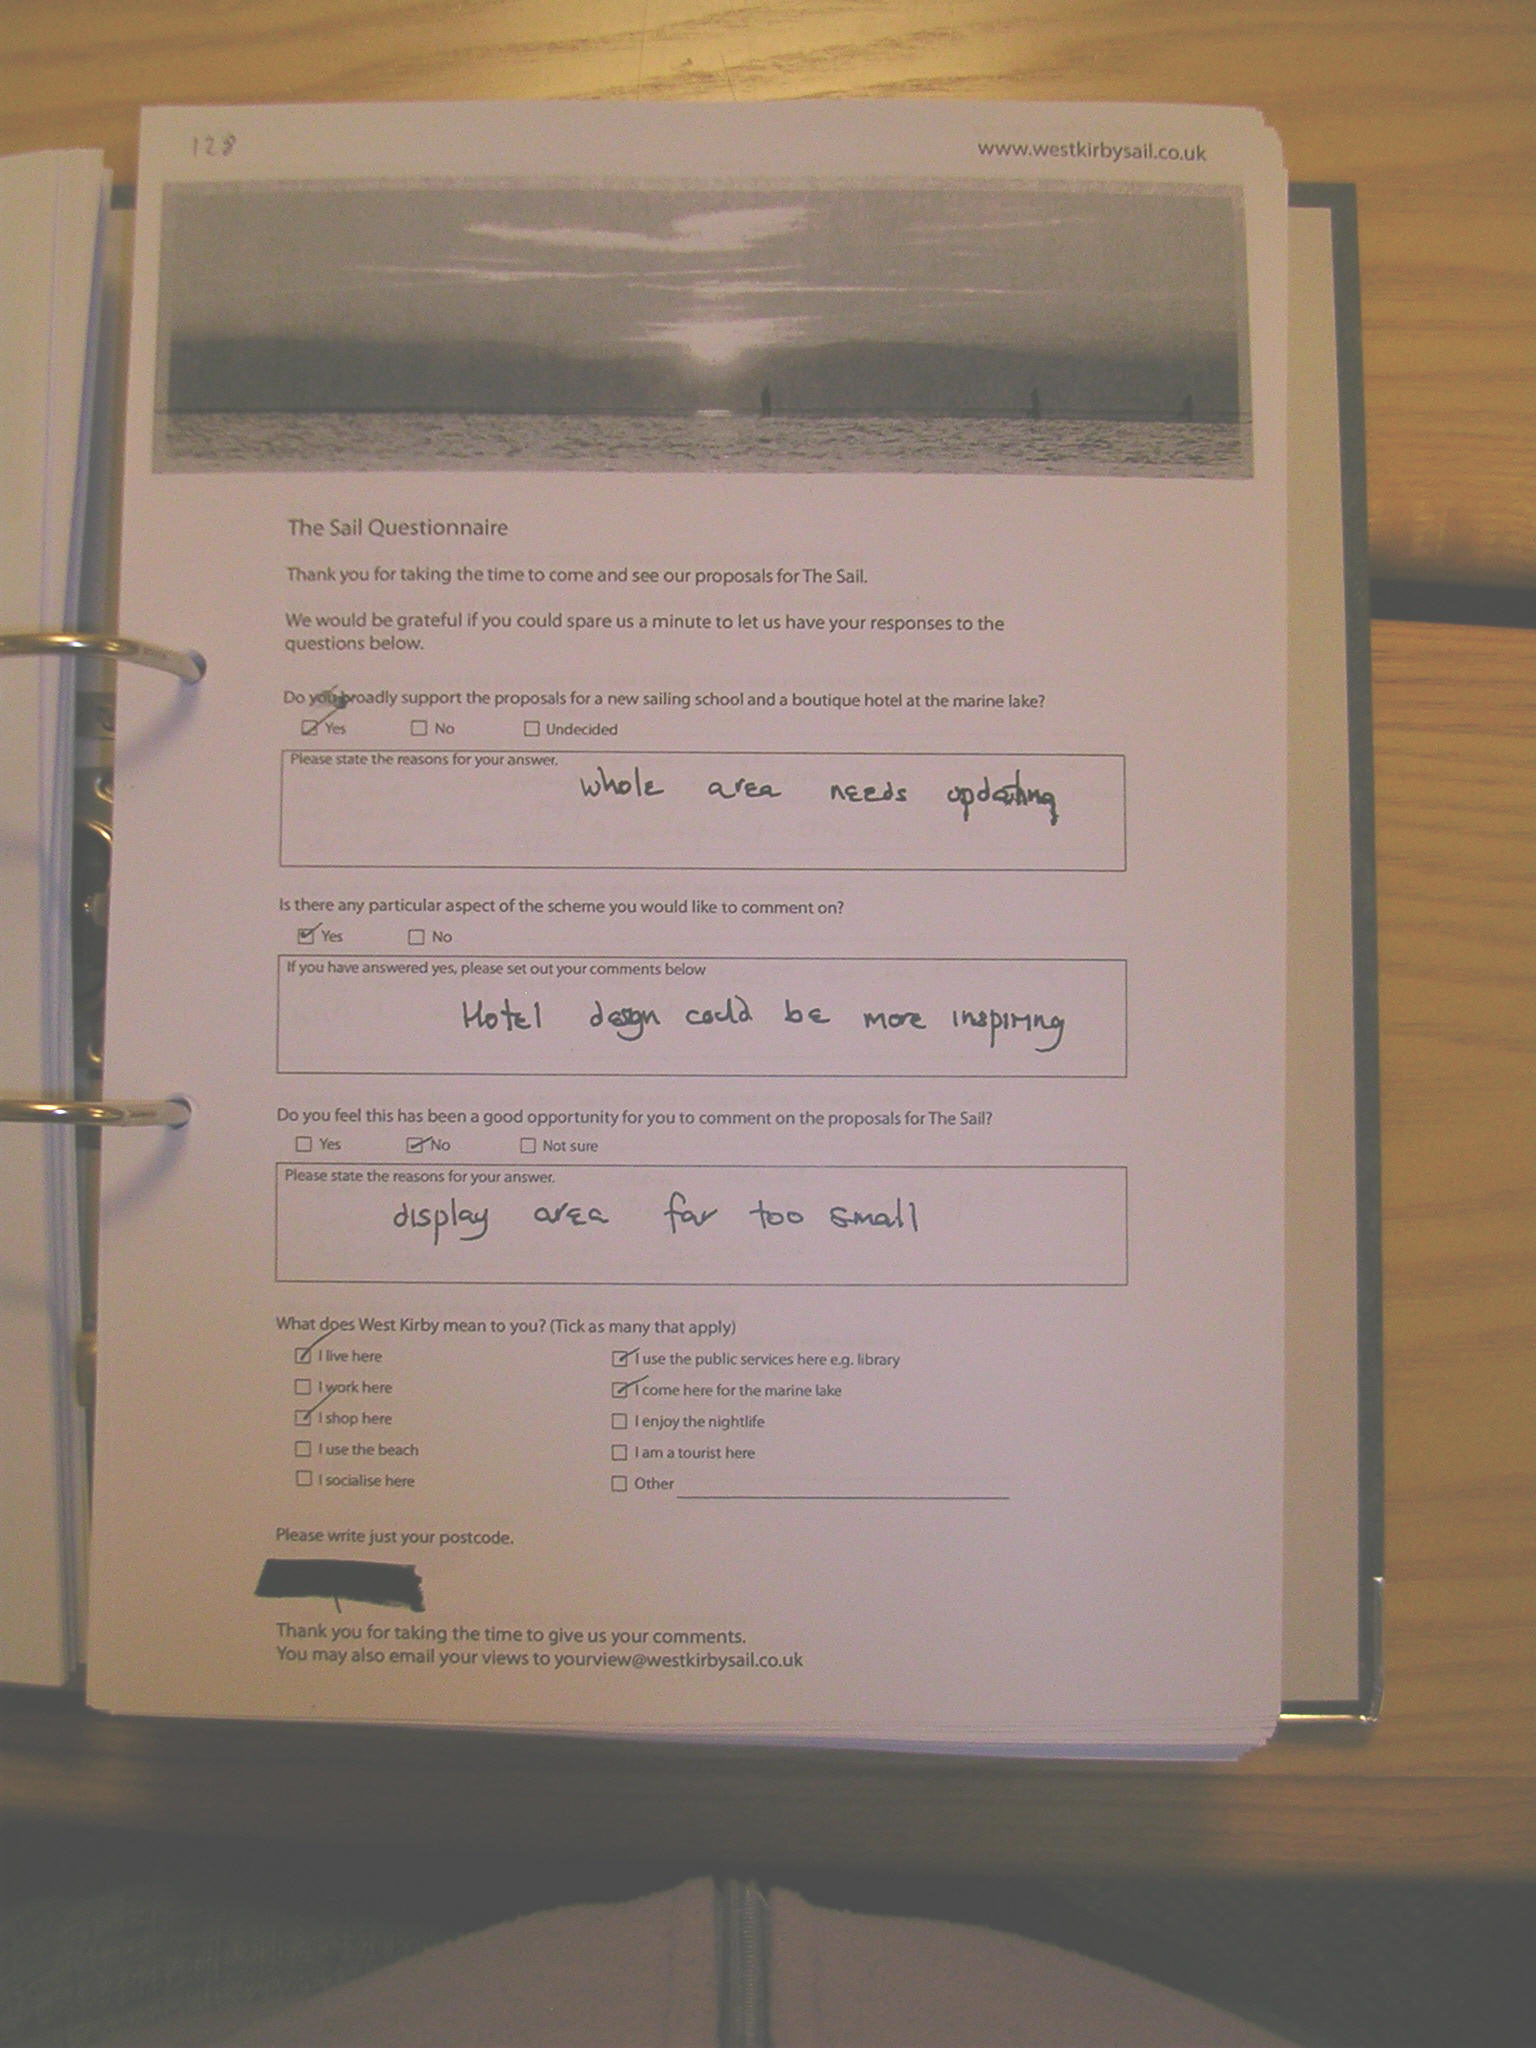 128
www.westkirbysail.co.uk
The Sail Questionnaire
Thank you for taking the time to come and see our proposals for The Sail.
We would be grateful if you could spare us a minute to let us have your responses to the
questions below.
Do you broadly support the proposals for a new sailing school and a boutique hotel at the marine lake?
Yes No Undecided
Please state the reasons for your answer.
whole area needs updating
Is there any particular aspect of the scheme you would like to comment on?
Yes No
If you have answered yes, please set out your comments below
Hotel design could be more inspiring
Do you feel this has been a good opportunity for you to comment on the proposals for The Sail?
Yes No Not sure
Please state the reasons for your answer.
display area far too small
What does West Kirby mean to you? (Tick as many that apply)
I live here
I work here
I shop here
I use the beach
I socialise here
I use the public services here e.g. library
I come here for the marine lake
I enjoy the nightlife
I am a tourist here
Other
Please write just your postcode.
Thank you for taking the time to give us your comments.
You may also email your views to yourview@westkirbysail.co.uk